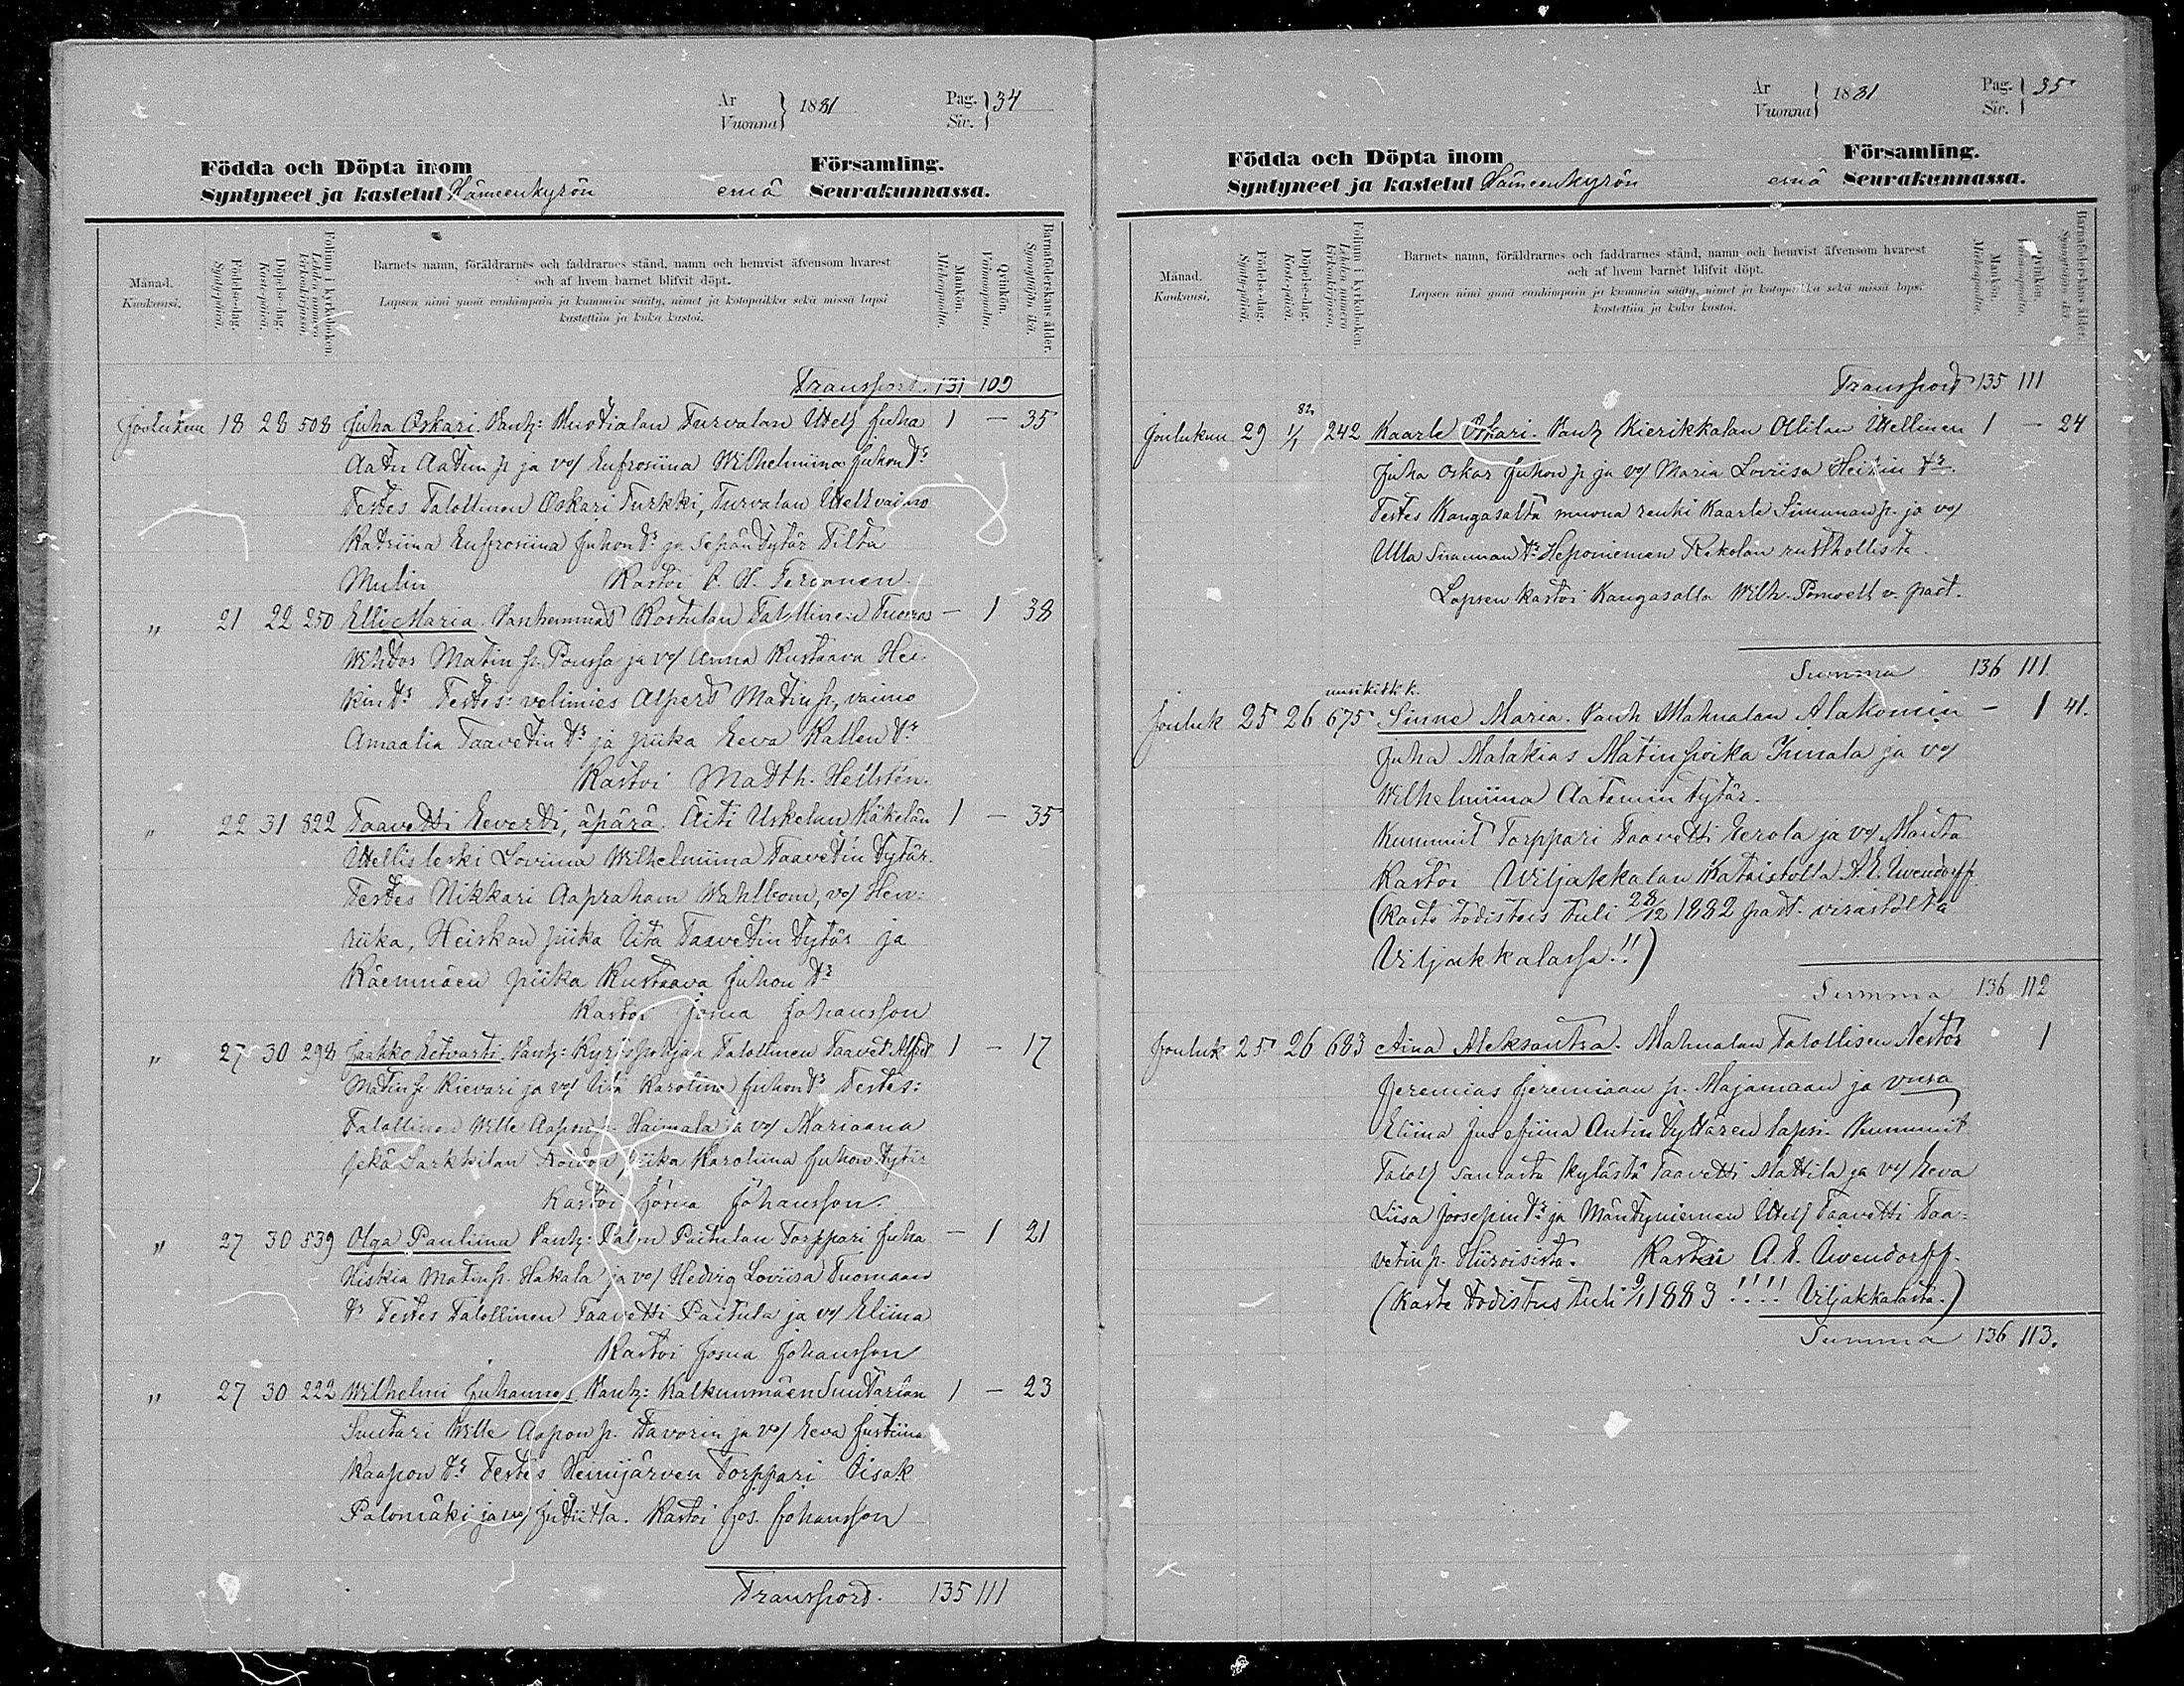 År Vuonna } 1881 Pag. Siv. } 34
Födda och Döpta inom Församling.
Syntyneet ja kastetut Hämeenkyrön emä Seurakunnassa.
Månad. Kuukausi.
Födelse-dag. Syntypäivä.
Döpelse-dag. Kastepäivä.
Folium i kyrkoboken. Lehden numero kirkonkirjassa.
Barnets namn, föräldrarnes och faddrarnes stånd, namn och hemvist äfvensom hvarest
och af hvem barnet blifvit döpt.
Lapsen nimi ynnä vanhimpain ja kummein sääty, nimet ja kotopaikka sekä missä lapsi
kastettiin ja kuka kastoi.
Mankön. Miehenpuolia.
Qvinkön. Vaimonpuolia.
Barnaföderskans ålder. Synnyttäjän ikä.
Transport. 131 109
Joulukuu 18 28 508 Juha Oskari. Vanh: Kustialan Turvalan Itell Juha 1 — 35
Aatu Aatun p ja vo/ Eufrosiina Wilhelmiina Juhon tr
Testes Talollinen Oskari Turkki, Turvalan Itell vaimo
Katriina Eufrosiina Juhon tr ja Sepän tytär Tilta
Mulin Kastoi
" 21 22 250 Elli Maria. Vanhemmat Kostulan Talollinen Tuomas — 1 38
Wihtor Matin p. Poussa ja vo/ Anna Kustaava Hei-
kin tr Testes: velimies Alpert Matin p, vaimo
Amaalia Taavetin tr ja piika Eeva Kallen tr
Kastoi Matth. Hellstén.
" 22 31 822 Taavetti Eeverti, äpärä. Äiti Uskelan Käkelän 1 — 35
Itellis leski Loviina Wilhelmiina Taavetin tytär.
Testes Nikkari Aapraham Wahlbom, vo/ Hen-
riika, Heiskan piika Iita Taavetin tytär ja
Räemmäen piika Kustaava Juhon tr
Kastoi Josua Johansson
" 27 30 298 Jaakko Eetvarti. Vanh: Kyröspohjan Talollinen Taavet Alfred 1 — 17
Matin p. Kievari ja vo/ Iita Karoliina Juhon tr Testes:
Talollinen Wille Aapon p. Haimala ja vo/ Mariaana
sekä Sarkkilan piika Karoliina Juhon tytär
Kastoi Josua Johansson.
" 27 30 539 Olga Pauliina Vanh: Palin Paitulan Torppari Juha — 1 21
Hiskia Matin p. Hakala ja vo/ Hedvig Loviisa Tuomaan
tr Testes Talollinen Taavetti Paitula ja vo/ Eliina
Kastoi Josua Johansson
" 27 30 222 Wilhelmi Juhannes. Vanh: Kalkunmäen Suutarlan 1 — 23
Suutari Wille Aapon p. Tavorin ja vo/ Eeva Justiina
Kaapon tr Testes Hemijärven Torppari Iisak
Palomäki ja vo/ Judiitta. Kastoi Jos. Johansson
Transport. 135 111
År Vuonna } 1881 Pag. Siv. } 35
Födda och Döpta inom Församling.
Syntyneet ja kastetut Hämeenkyrön emä Seurakunnassa.
Månad. Kuukausi.
Födelse-dag. Syntypäivä.
Döpelse-dag. Kastepäivä.
Folium i kyrkoboken. Lehden numero kirkonkirjassa.
Barnets namn, föräldrarnes och faddrarnes stånd, namn och hemvist äfvensom hvarest
och af hvem barnet blifvit döpt.
Lapsen nimi ynnä vanhimpain ja kummein sääty, nimet ja kotopaikka sekä missä lapsi
kastettiin ja kuka kastoi.
Mankön. Miehenpuolia.
Qvinkön. Vaimonpuolia.
Barnaföderskans ålder. Synnyttäjän ikä
Transport 135 111
82
Joulukuu 29 1/1 242 Kaarle Oskari. Vanh Kierikkalan Ollilan Itellinen 1 — 24
Juha Oskar Juhon p ja vo/ Maria Loviisa Heikin tr.
Testes Kangasalta muona renki Kaarle Simunan p. ja vo/
Ulla Simunan tr Heponiemen Rekolan rustholista.
Lapsen kastoi Kangasalla Wilh. v. past.
Summa 136 111
Jouluk 25 26 675 Sinne Maria. Vanh Mahnalan Alahomin — 1 41.
Juha Malakias Matinpoika Junala ja vo/
Wilhelmiina Aatamin tytär.
Kummit Torppari Taavetti Eerola ja vo/ Manta
Kastoi Viljakkalan Kataistolla A. E. Uvendorff
(Kaste todistus tuli 28/12 1882 past. virastolta
Viljakkalassa!!)
Summa 136 112
Jouluk 25 26 683 Aina Aleksantra. Mahnalan Talollisen Nestor 1
Jeremias Jeremiaan p. Majamaan ja vnsa
Eliina Josefiina Antin tyttären lapsi. Kummit
Talol/ samasta kylästä Taavetti Mattila ja vo/ Eeva
Liisa Joosepin tr ja Mäntyniemen Itel/ Taavetti Taa-
vetin p. Hiiroisista. Kastoi A. E. Uvendorff.
(Kaste todistus tuli 9/1 1883 !!!! Viljakkalasta.)
Summa 136 113.